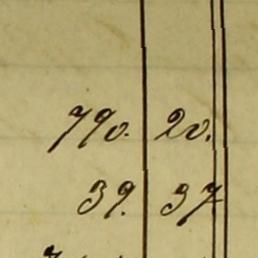 790. 20.
39. 37